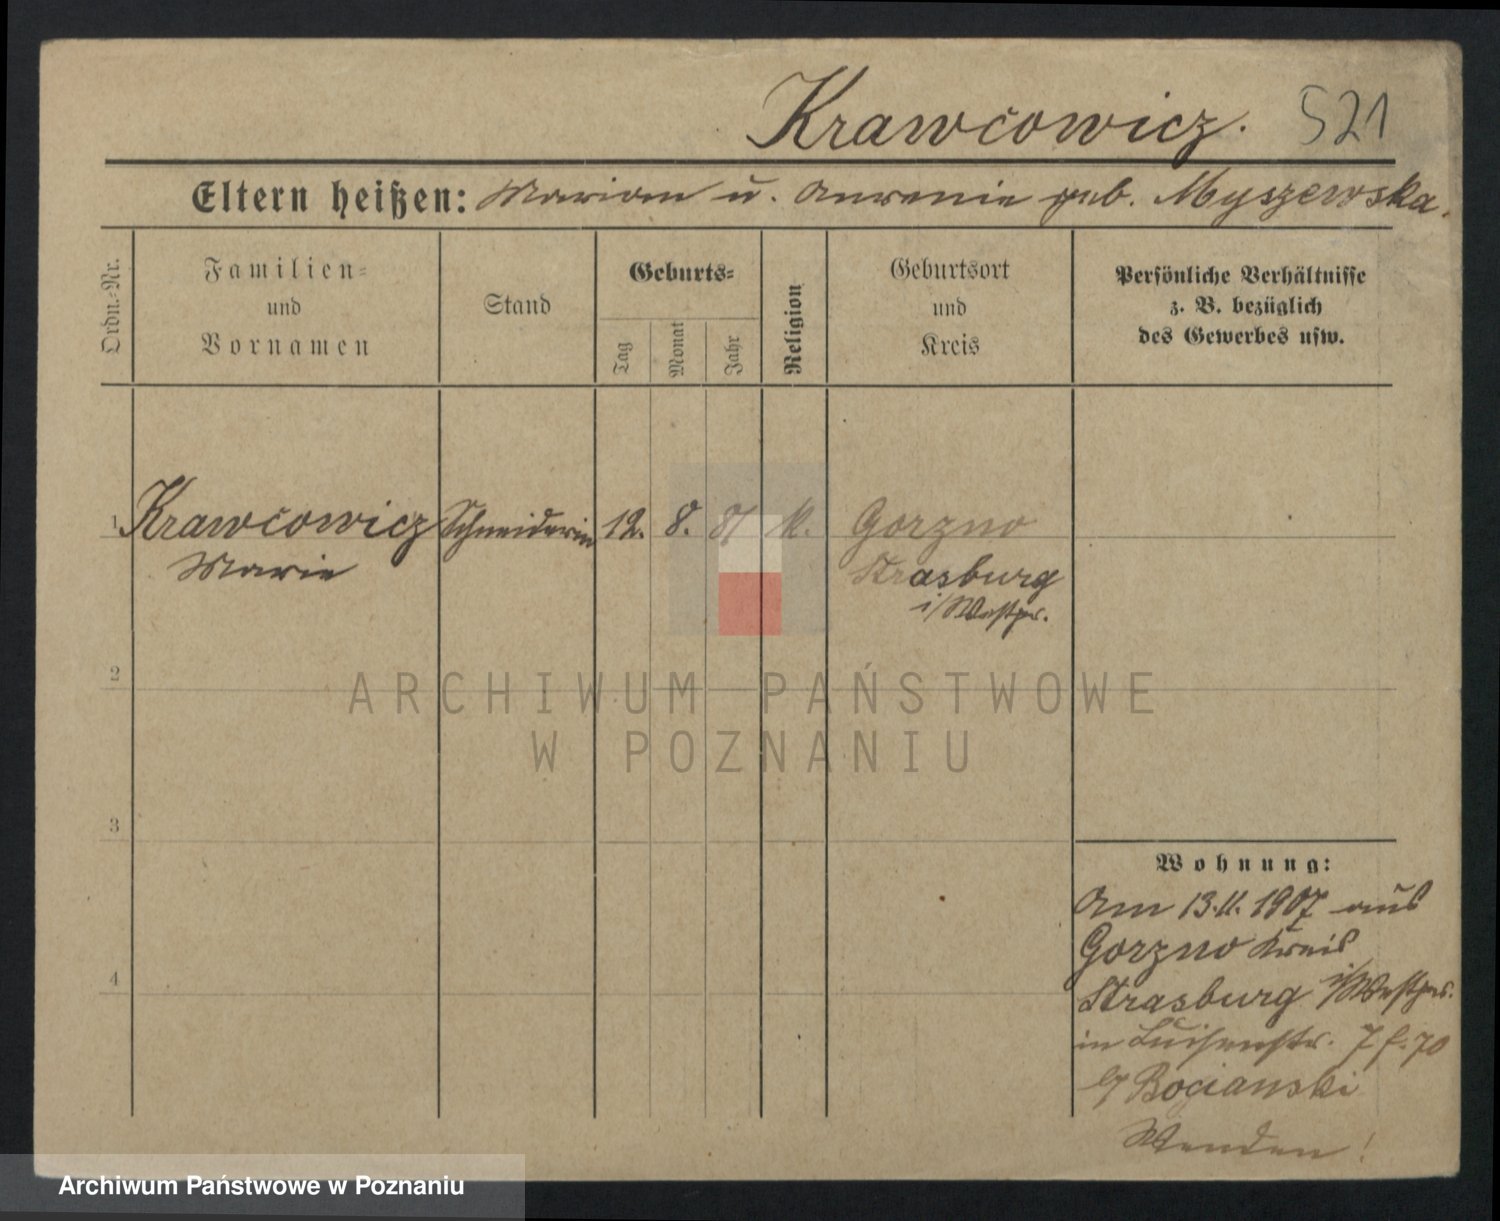 Krawcowicz. 521
Eltern heißen: Marian u. geb. Myszewska.
Ordn.-Nr.
Familien-
und
Vornamen
Stand
Geburts-
Tag
Monat
Jahr
Religion
Geburtsort
und
Kreis
Persönliche Verhältnisse
z. B. bezüglich
des Gewerbes usw.
1 Krawcowicz Schneiderin 12. 8. 87 k. Gorzno
Marie Strasburg
i/Westpr.
2
ARCHIWUM PAŃSTWOWE
W POZNANIU
3
Wohnung:
Am 13.11.1907 aus
Gorzno Kreis
Strasburg i/Westpr.
in Luisenstr. 7 f. 70
4
b/ Bocianski
Wenden!
Archiwum Państwowe w Poznaniu